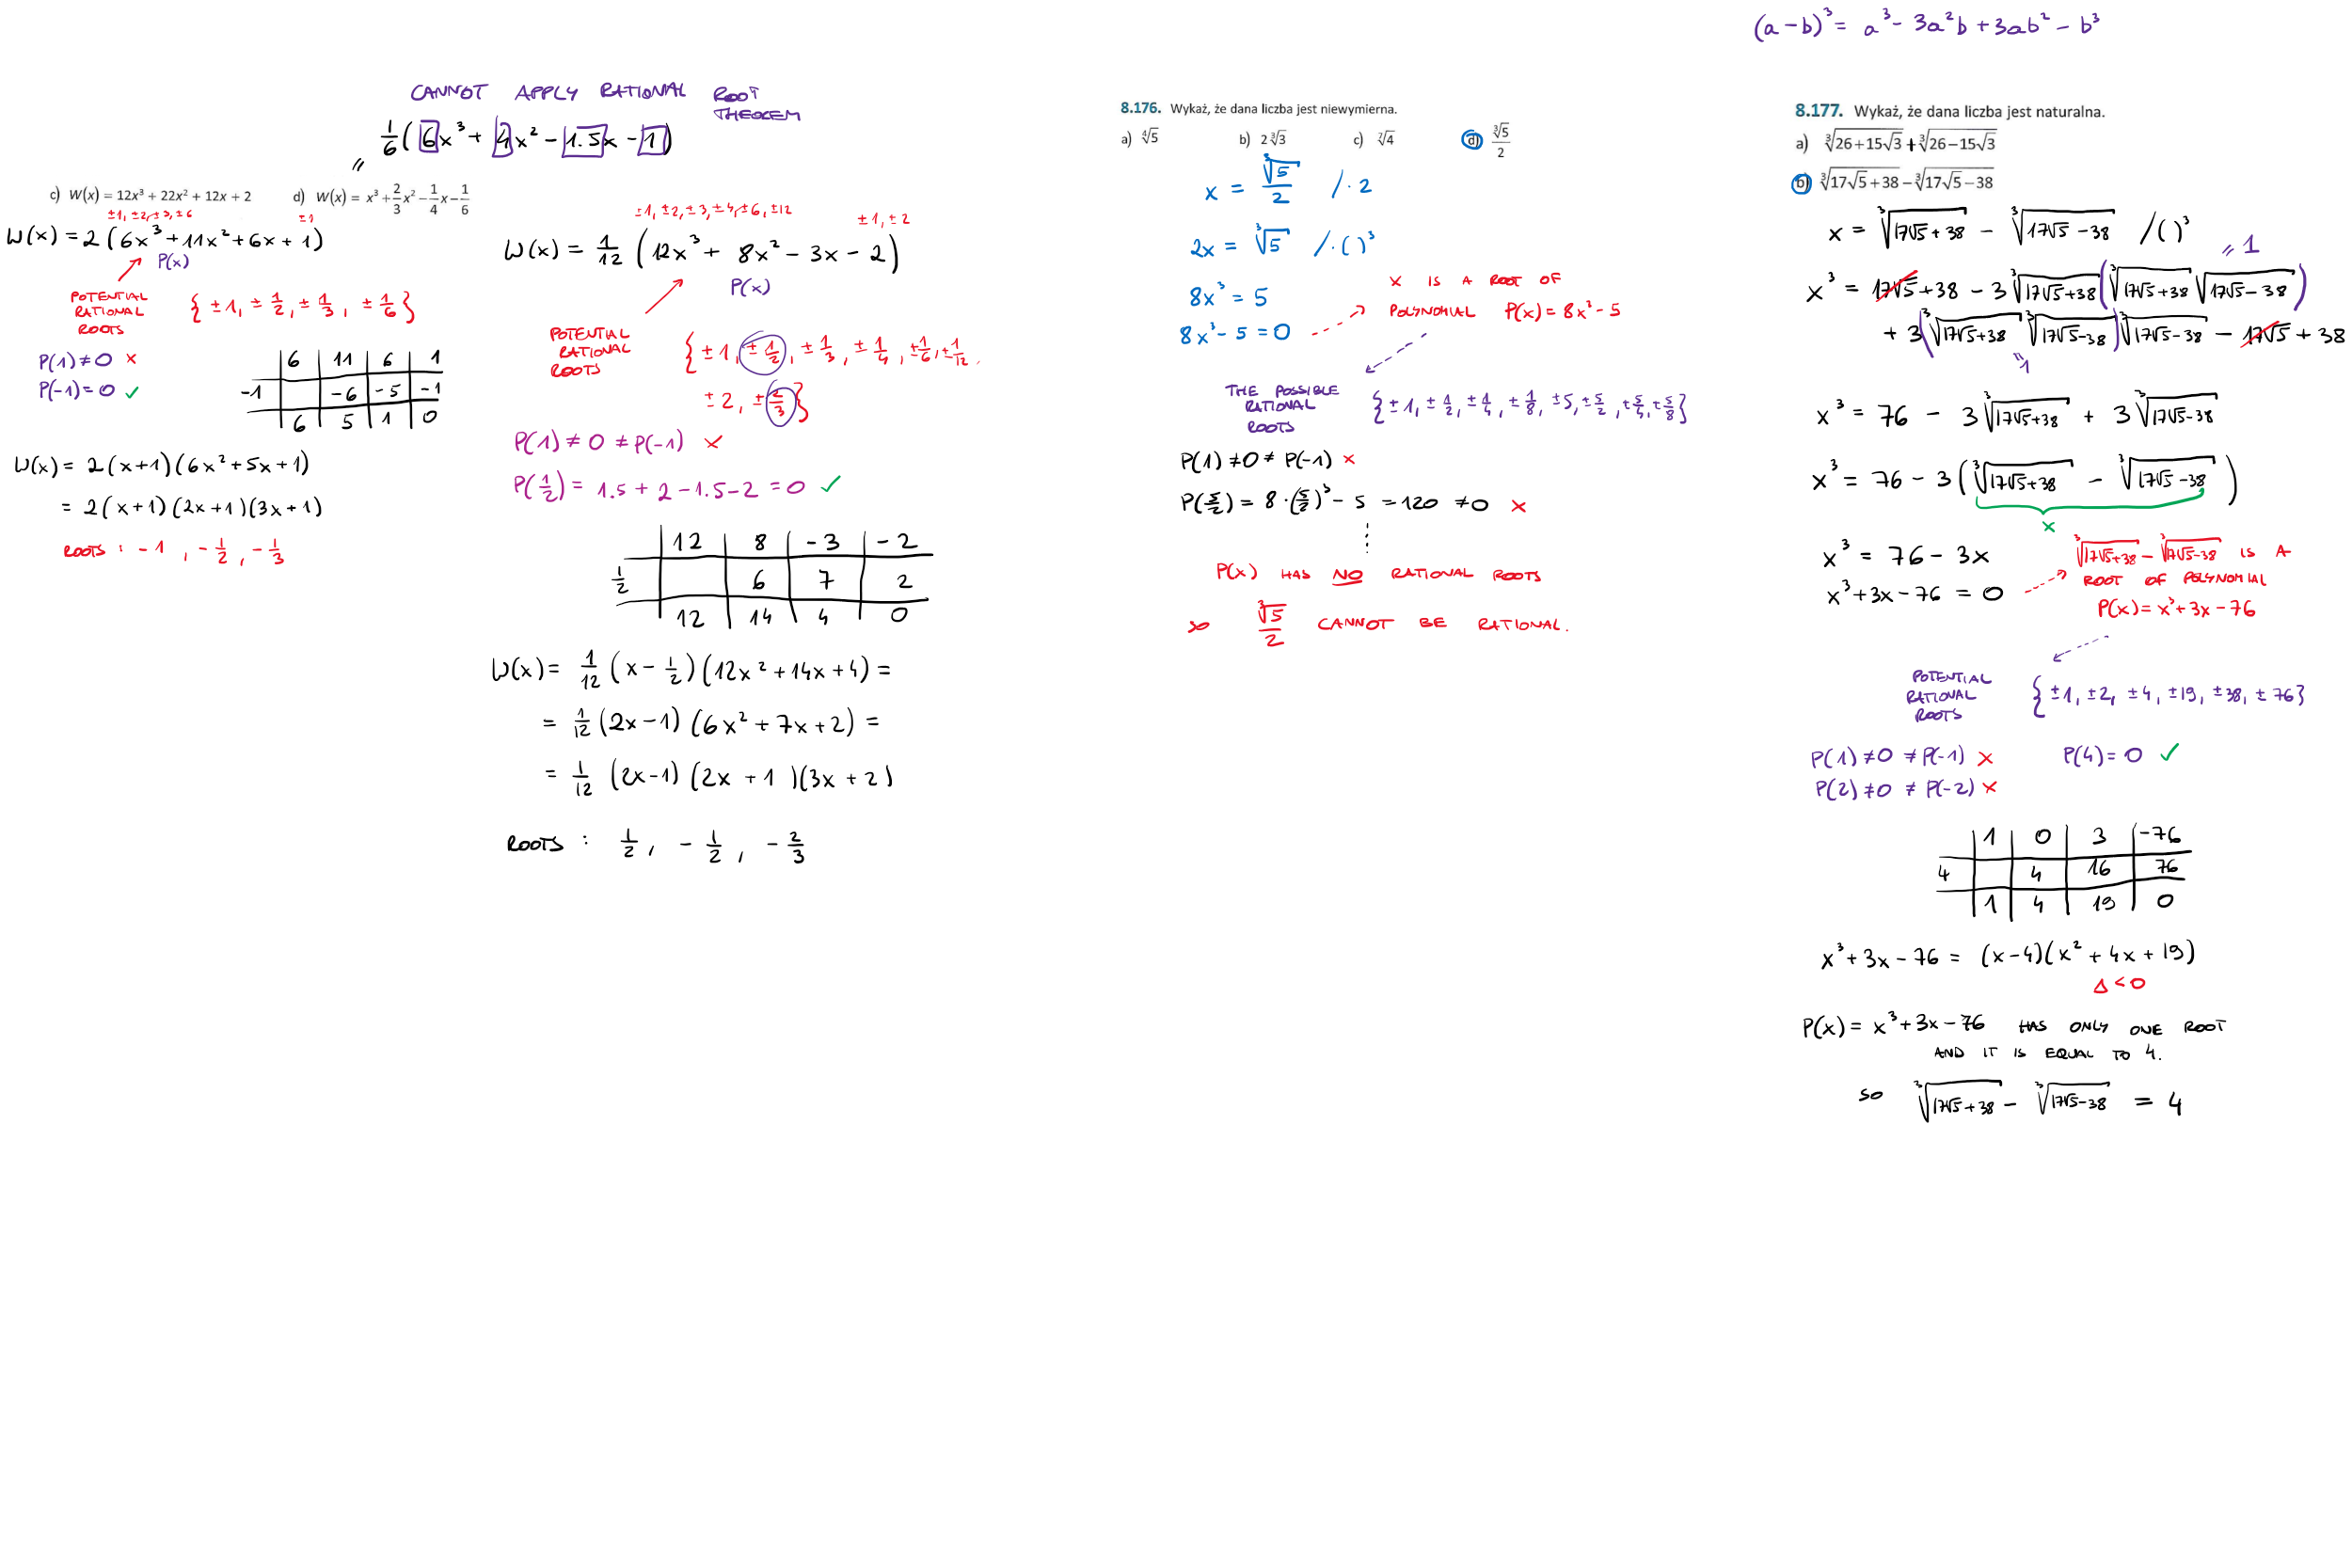 CANNOT APPLY RATIONAL ROOT THEOREM
= 1/6 (6x³ + 4x² - 1.5x - 1)
c) W(x) = 12x³ + 22x² + 12x + 2
±1, ±2, ±3, ±6
±1
W(x) = 2(6x³ + 11x² + 6x + 1)
P(x)
POTENTIAL RATIONAL ROOTS {±1, ±1/2, ±1/3, ±1/6}
P(1) ≠ 0 ×
P(-1) = 0 ✓
6 | 11 | 6 | 1
-1 | | -6 | -5 | -1
6 | 5 | 1 | 0
W(x) = 2(x+1)(6x²+5x+1)
= 2(x+1)(2x+1)(3x+1)
ROOTS : -1, -1/2, -1/3
d) W(x) = x³ + 2/3 x² - 1/4 x - 1/6
±1, ±2, ±3, ±4, ±6, ±12
±1, ±2
W(x) = 1/12 (12x³ + 8x² - 3x - 2)
P(x)
POTENTIAL RATIONAL ROOTS {±1, ±1/2, ±1/3, ±1/4, ±1/6, ±1/12,
±2, ±2/3}
P(1) ≠ 0 ≠ P(-1) ×
P(1/2) = 1.5 + 2 - 1.5 - 2 = 0 ✓
12 | 8 | -3 | -2
1/2 | | 6 | 7 | 2
12 | 14 | 4 | 0
W(x) = 1/12 (x - 1/2)(12x² + 14x + 4) =
= 1/12 (2x-1)(6x² + 7x + 2) =
= 1/12 (2x-1)(2x + 1)(3x + 2)
ROOTS : 1/2, -1/2, -2/3
8.176. Wykaż, że dana liczba jest niewymierna.
a) ⁴√5 b) 2∛3 c) ⁷√4 d) ∛5/2
x = ∛5/2 /·2
2x = ∛5 /·( )³
8x³ = 5
8x³ - 5 = 0
X IS A ROOT OF
POLYNOMIAL P(x) = 8x³ - 5
THE POSSIBLE RATIONAL ROOTS {±1, ±1/2, ±1/4, ±1/8, ±5, ±5/2, ±5/4, ±5/8}
P(1) ≠ 0 ≠ P(-1) ×
P(5/2) = 8·(5/2)³ - 5 = 120 ≠ 0 ×
P(x) HAS NO RATIONAL ROOTS
SO ∛5/2 CANNOT BE RATIONAL.
(a-b)³ = a³ - 3a²b + 3ab² - b³
8.177. Wykaż, że dana liczba jest naturalna.
a) ∛(26+15√3) + ∛(26-15√3)
b) ∛(17√5+38) - ∛(17√5-38)
x = ∛(17√5+38) - ∛(17√5-38) /( )³
= 1
x³ = 17√5+38 - 3∛(17√5+38) (∛(17√5+38) ∛(17√5-38))
+ 3(∛(17√5+38) ∛(17√5-38)) ∛(17√5-38) - 17√5 + 38
= 1
x³ = 76 - 3∛(17√5+38) + 3∛(17√5-38)
x³ = 76 - 3(∛(17√5+38) - ∛(17√5-38))
x
x³ = 76 - 3x
x³+3x-76 = 0
∛(17√5+38) - ∛(17√5-38) IS A
ROOT OF POLYNOMIAL
P(x) = x³+3x-76
POTENTIAL RATIONAL ROOTS {±1, ±2, ±4, ±19, ±38, ±76}
P(1) ≠ 0 ≠ P(-1) × P(4) = 0 ✓
P(2) ≠ 0 ≠ P(-2) ×
1 | 0 | 3 | -76
4 | | 4 | 16 | 76
1 | 4 | 19 | 0
x³+3x-76 = (x-4)(x² + 4x + 19)
Δ < 0
P(x) = x³+3x-76 HAS ONLY ONE ROOT
AND IT IS EQUAL TO 4.
SO ∛(17√5+38) - ∛(17√5-38) = 4